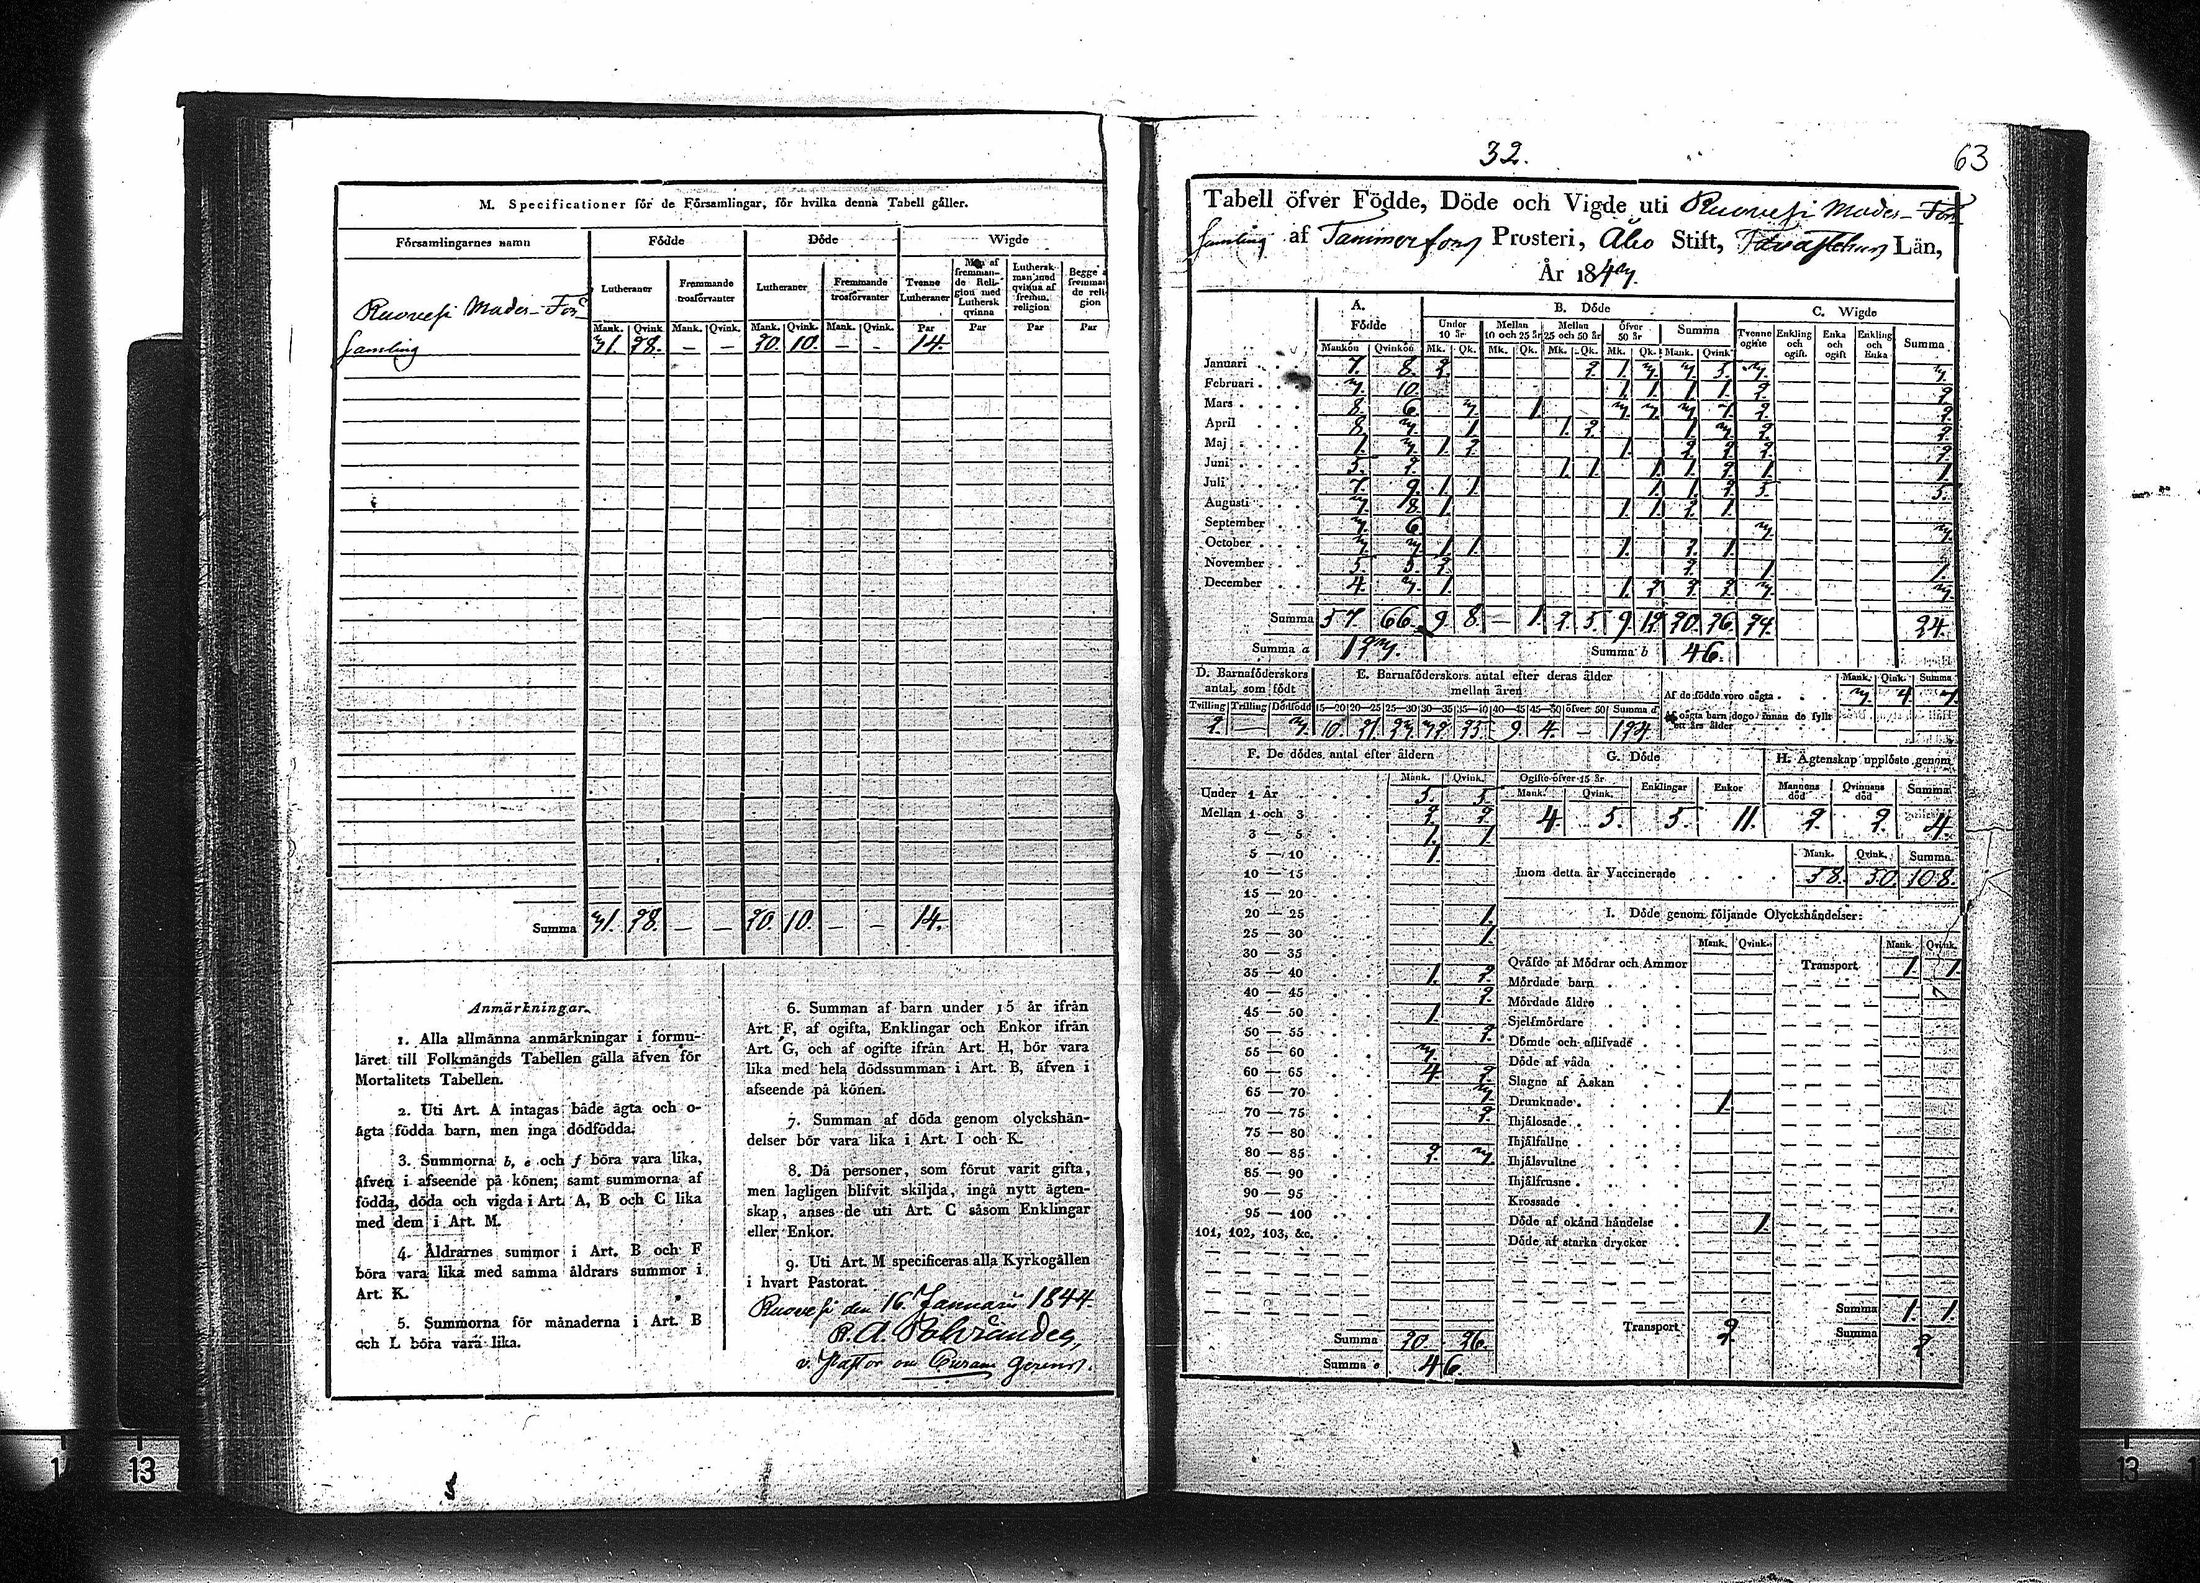 M. Specificationer för de Församlingar, för hvilka denna Tabell gäller.
Församlingarnes namn
Födde
Döde
Wigde
Lutheraner
Fremmande trosförvanter
Lutheraner
Fremmande trosförvanter
Tvenne Lutheraner
Man af fremmande Religion med Luthersk qvinna
Luthersk man med qvinna af fremm. religion
Begge fremman de reli gion
Mank. Qvink. Mank. Qvink. Mank. Qvink. Mank. Qvink. Par Par Par Par
Ruovesi Moder-För
samling 31. 28. — — 20. 10. — — 14.
Summa 31. 28. — — 20. 10. — — 14.
Anmärkningar.
1. Alla allmänna anmärkningar i formu-
läret till Folkmängds Tabellen gälla äfven för
Mortalitets Tabellen.
2. Uti Art. A intagas både ägta och o-
ägta födda barn, men inga dödfödda.
3. Summorna b, e och f böra vara lika,
äfven i afseende på könen; samt summorna af
födda, döda och vigda i Art. A, B och C lika
med dem i Art. M.
4. Åldrarnes summor i Art. B och F
böra vara lika med samma åldrars summor i
Art. K.
5. Summorna för månaderna i Art. B
och L böra vara lika.
6. Summan af barn under 15 år ifrån
Art. F, af ogifta, Enklingar och Enkor ifrån
Art. G, och af ogifte ifrån Art. H, bör vara
lika med hela dödssumman i Art. B, äfven i
afseende på könen.
7. Summan af döda genom olyckshän-
delser bör vara lika i Art. I och K.
8. Då personer, som förut varit gifta,
men lagligen blifvit skiljda, ingå nytt ägten-
skap, anses de uti Art. C såsom Enklingar
eller Enkor.
9. Uti Art. M specificeras alla Kyrkogällen
i hvart Pastorat.
Ruovesi den 16. Januarii 1844.
v. Pastor
32.
63
Tabell öfver Födde, Döde och Vigde uti Ruovesi Moder-För
samling af Tammerfors Prosteri, Åbo Stift, Tavastehus Län,
År 1843.
A. Födde
B. Döde
C. Wigde
Under 10 år
Mellan 10 och 25 år
Mellan 25 och 50 år
Öfver 50 år
Summa
Tvenne ogifte
Enkling och ogift
Enka och ogift
Enkling och Enka
Summa
Mankön Qvinkön Mk. Qk. Mk. Qk. Mk. Qk. Mk. Qk. Mank. Qvink.
Januari 7. 8. 2. 2. 1. 3. 3. 5. 3. 3.
Februari 3. 10. 1. 1. 1. 1. 2. 2
Mars 8. 6. 3. 1. 3. 3. 3. 7. 2. 2.
April 8. 3. 1. 1. 2. 1. 3. 2. 2.
Maj 1. 3. 1. 2. 1. 2. 2. 2. 2.
Juni 5. 2. 1. 1. 1. 1. 2. 1. 1.
Juli 7. 9. 1. 1. 1. 1. 2. 5. 5.
Augusti 3. 8. 1. 1. 1. 2. 1.
September 3. 6. 3. 3.
October 3. 3. 1. 1. 1. 2. 1.
November 5. 5. 2. 2. 1. 1.
December 4. 3. 1. 1. 2. 2. 2. 3. 3.
Summa 57. 66. 9. 8. — 1. 2. 5. 9. 12. 20. 26. 24. 24.
Summa a 123. Summa b 46.
D. Barnaföderskors antal, som födt
E. Barnaföderskors antal efter deras ålder mellan åren
Mank. Qink. Summa
Af de födde voro oägta 3. 4. 7.
Af oägta barn dogo innan de fyllt ett års ålder
Tvilling Trilling Dödfödd 15—20 20—25 25—30 30—35 35—40 40—45 45—50 öfver 50 Summa d
2. — 3. 10. 21. 23. 32. 25. 9. 4. — 124.
F. De dödes antal efter åldern
Mank. Qvink.
Under 1 År 5. 5.
Mellan 1 och 3 2. 2
3 — 5 1. 1.
5 — 10 1.
10 — 15
15 — 20
20 — 25 1.
25 — 30 1.
30 — 35
35 — 40 1. 2.
40 — 45 2.
45 — 50 1.
50 — 55 2.
55 — 60 3.
60 — 65 4. 2.
65 — 70 3.
70 — 75 2.
75 — 80
80 — 85 2. 3.
85 — 90
90 — 95
95 — 100
101, 102, 103, &c.
Summa 20. 26.
Summa e 46.
G. Döde
Ogifte öfver 15 år
Mank. Qvink. Enklingar Enkor
4. 5. 5. 11.
H. Ägtenskap upplöste genom
Mannens död Qvinnans död Summa
2. 2. 4.
Mank. Qvink. Summa
Inom detta år Vaccinerade 58. 50. 108.
I. Döde genom följande Olyckshändelser:
Mank. Qvink. Mank. Qvink.
Qväfde af Mödrar och Ammor Transport 1. 1.
Mördade barn
Mördade äldre
Sjelfmördare
Dömde och aflifvade
Döde af våda
Slagne af Åskan
Drunknade 1.
Ihjälosade
Ihjälfallne
Ihjälsvultne
Ihjälfrusne
Krossade
Döde af okänd händelse 1.
Döde af starka drycker
Summa 1. 1.
Transport 2. Summa 2
13
13